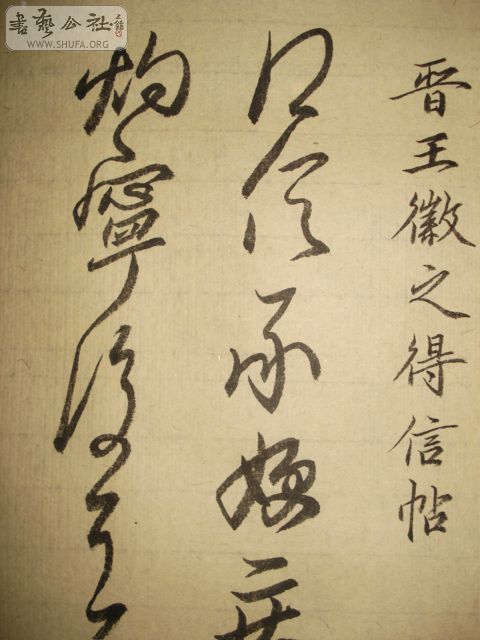 書藝公社
WWW.SHUFA.ORG
晉王徽之得信帖
得信承嫂
灼寧復可